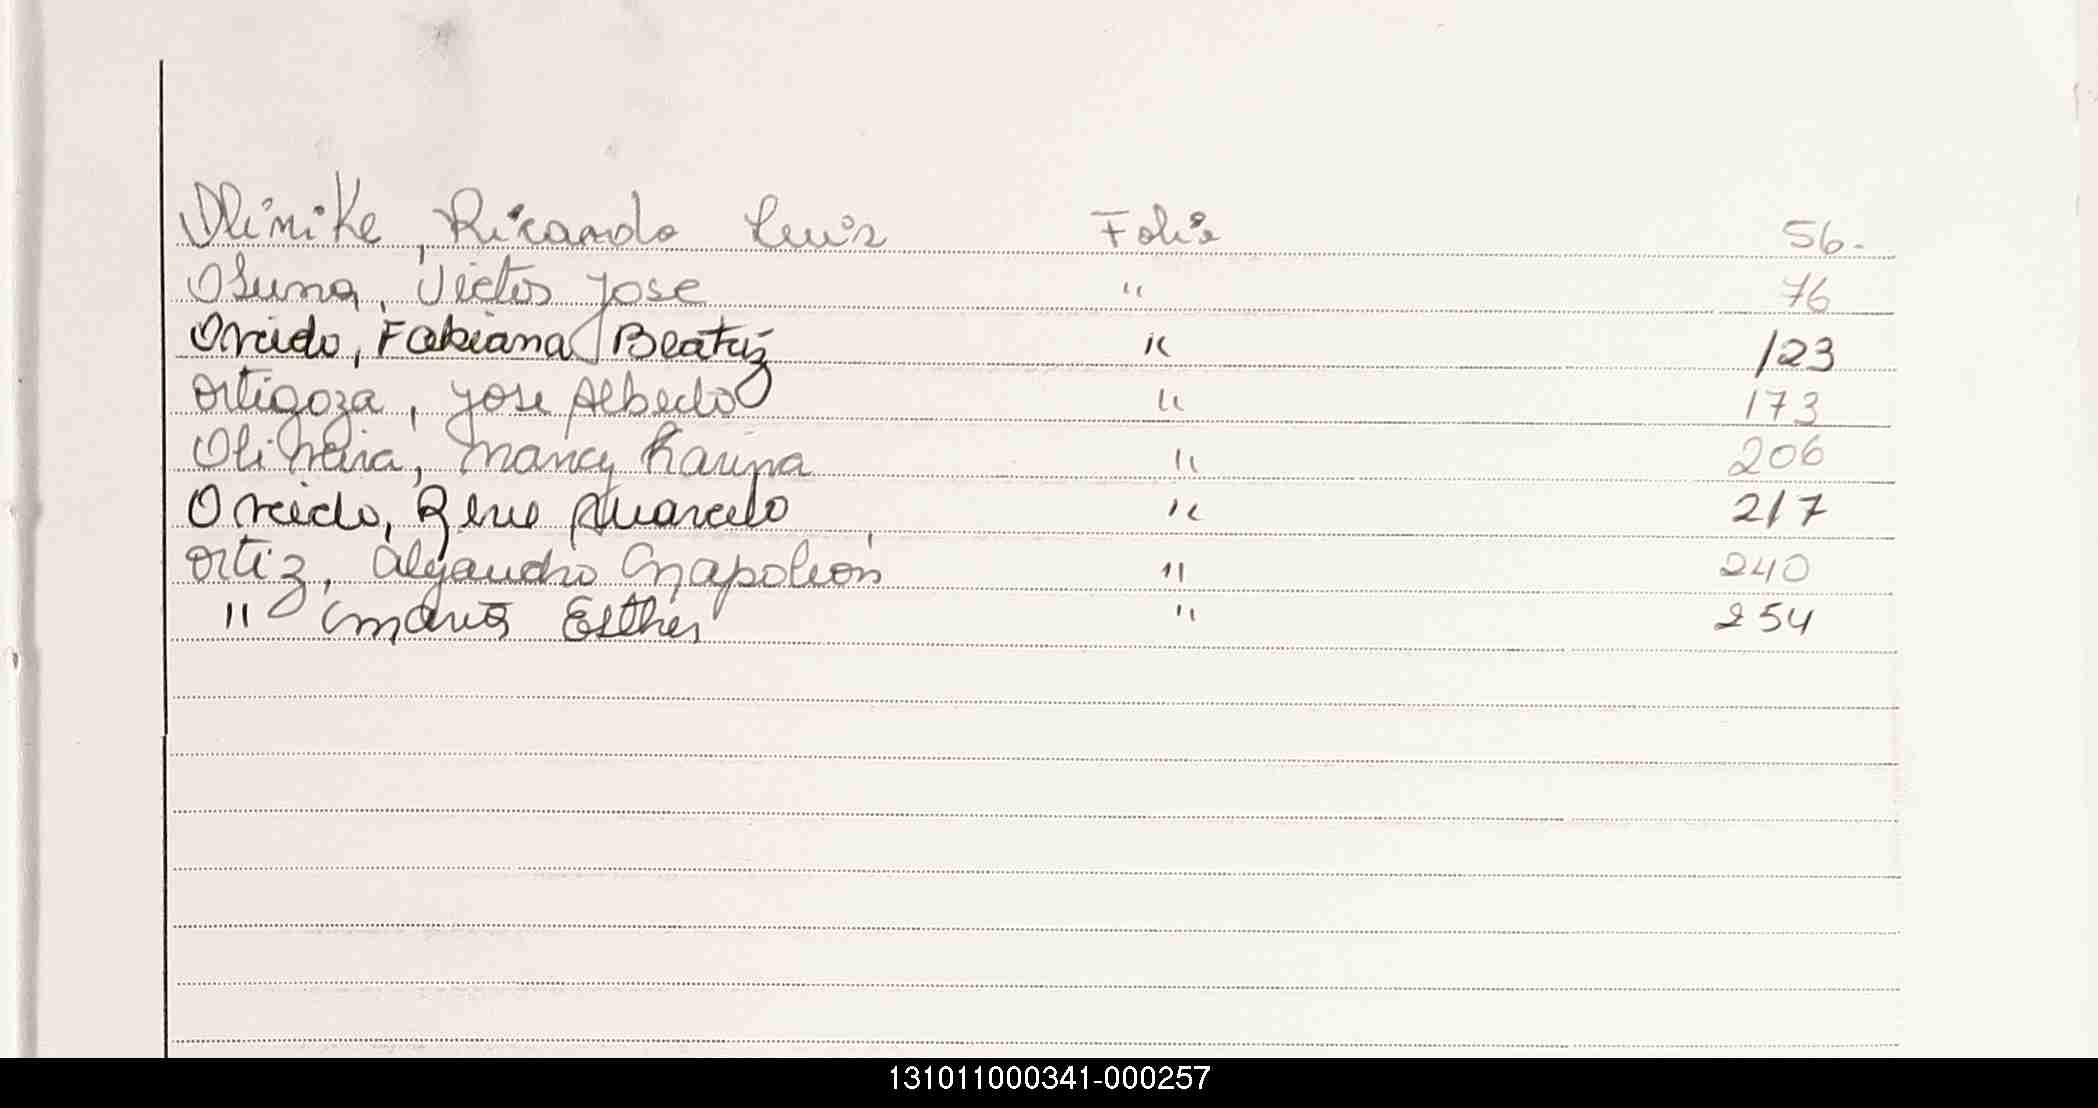 Olinike, Ricardo Luis Folio 56.
Osuna, Victor Jose " 76
Oviedo, Fabiana Beatriz " 123
Ortigoza, Jose Alberto " 173
Oliveira, Nancy Karina " 206
Oviedo, Rene Marcelo " 217
Ortiz, Alejandro Napoleón " 240
" María Esther " 254
131011000341-000257